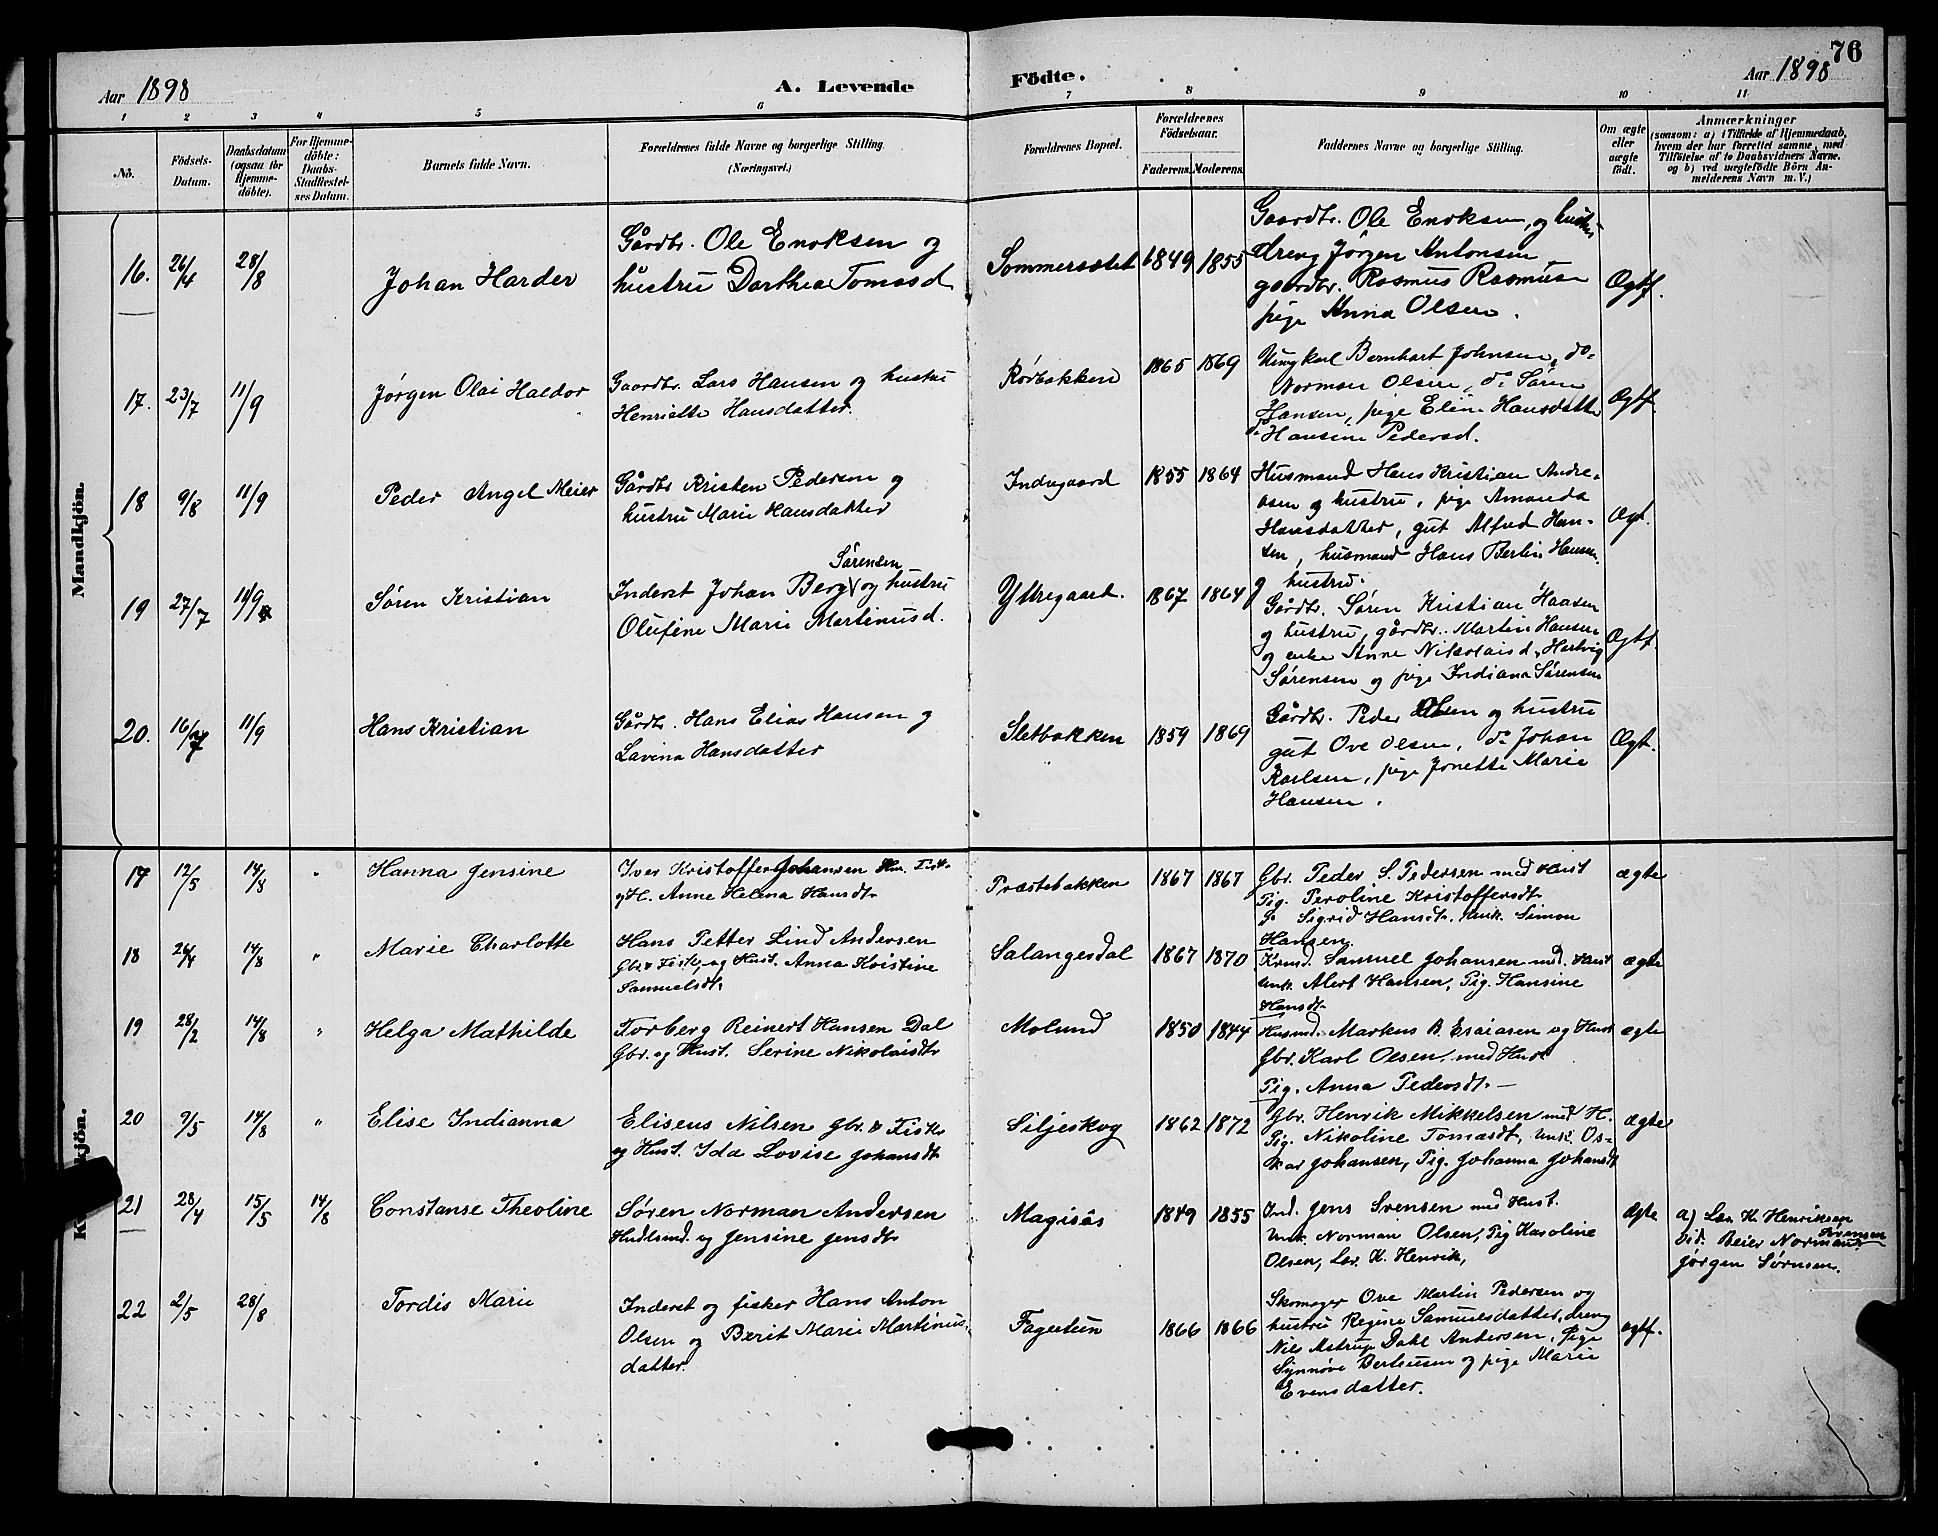 76
Aar 1898 A. Levende Födte. Aar 1898
1 2 3 4 5 6 7 8 9 10 11
No.
Födsels-
Datum.
Daabsdatum
(ogsaa for
Hjemme-
döbte).
For Hjemme-
döbte:
Daabs-
Stadfæstel-
ses Datum.
Barnets fulde Navn.
Forældrenes fulde Navne og borgerlige Stilling.
(Næringsvei.)
Forældrenes Bopæl.
Forældrenes
Födselsaar.
Faderens. Moderens.
Faddernes Navne og borgerlige Stilling.
Om ægte
eller
uægte
födt.
Anmærkninger
(saasom: a) i Tilfælde af Hjemmedaab,
hvem der har forrettet samme, med
Tilföielse af to Daabsvidners Navne.
og b) ved uægtefödte Börn An-
melderens Navn m. V.)
Mandkjön.
16. 26/4 28/8 Johan Harder
Gårdbr. Ole Enoksen og
hustru Dorthea Tomasd.
Sommersætet 1849 1855
Gaardbr. Ole Enoksen, og hustru
dreng Jørgen Antonsen
gaardbr. Rasmus Rasmusen
pige Anna Olsen.
Ægtf.
17. 23/7 11/9 Jørgen Olai Haldor
Gaardbr. Lars Hansen og hustru
Henriette Hansdatter.
Rødbakken 1865 1869
Ungkarl Bernhart Johnsen, do.
Norman Olsen, do Søren
Hansen, pige Eline Hansdatter
do Hansine Pedersd.
Ægtf.
18 9/8 11/9 Peder Angel Meier
Gårdbr Kristen Pedersen og
hustru Marie Hansdatter
Indregaard 1855 1864
Husmand Hans Kristian Andre-
asen og hustru, pige Amanda
Hansdatter, gut Alfred Han-
sen, husmand Hans Berlin Hansen
og hustru.
Ægt.
19 27/7 11/9 Søren Kristian
Inderst Johan Berg Sørensen og hustru
Olufine Marie Martinusd.
Yttregaard. 1867 1864
Gårdbr. Søren Kristian Haasen
og hustru, gårdbr. Martin Hansen
og enke Anne Nikolaisd, Hartvig
Sørensen og pige Indiana Sørensen
Ægtf.
20. 16/7 11/9 Hans Kristian
Gårdbr. Hans Elias Hansen og
Lavina Hansdatter
Sletbakken 1859 1869
Gårdbr. Peder Olsen og hustru
gut Ove Olsen, do Johan
Karlsen, pige Jonette Marie
Hansen.
Ægt.
17 12/5 14/8 " Hanna Jensine
Iver Kristoffer Johansen Hm. Fisk.
og H. Anne Helena Hansdt.
Præstebakken 1867 1867
Gbr. Peder S. Pedersen med Hust
Pig. Peroline Kristoffersdt.
Sigrid Hansdt. Unk. Simon
Hansen.
ægte
18 26/4 14/8 " Marie Charlotte
Hans Petter Lind Andersen
Gbr. Fisk. og Hust. Anna Kristine
Samuelsdt.
Salangesdal 1867 1870
Samuel Johansen med. Hust
Unk. Alert Hansen, Pig. Hansine
Hansdt.
ægte
19 28/2 14/8 " Helga Mathilde
Torberg Reinert Hansen Dal
Gbr. og Hust. Serine Nikolaisdt.
Molund 1850 1844
Husmd. Markus B. Esaiasen og Hust
Gbr. Karl Olsen, med Hust
Pig. Anna Pedersdt. —
ægte
20 9/5 14/8 " Elise Indianna
Eliseus Nilsen Gbr. & Fisk.
og Hust. Ida Lovise Johansdt.
Siljeskog 1862 1872
Gbr. Henrik Mikkelsen med H.
Pig. Nikoline Tomasdt, Unk. Os-
kar Johansen, Pig. Johanna Johansdt
ægte
21 28/4 15/5 14/8 Constanse Theoline
Søren Norman Andersen
Hndlsmd. og Jensine Jensdt.
Magisås 1849 1855
Ind. Jens Svensen med Hust.
Unk. Norman Olsen, Pig Karoline
Olsen, Lær. K. Henrik,
Ægte
a) Lær K. Henriksen
Vid: Beier Normand Svensen
Jørgen Sørnsen.
22 2/5 28/8 Tordis Marie
Inderst og fisker Hans Anton
Olsen og Berit Marie Martinus-
datter.
Fagertun 1866 1866
Skomager Ove Martin Pedersen og
hustru Regine Samuelsdatter, dreng
Nils Astrup Dahl Andersen, Pige
Synnøve Berhusen og pige Marie
Evensdatter.
ægtf.